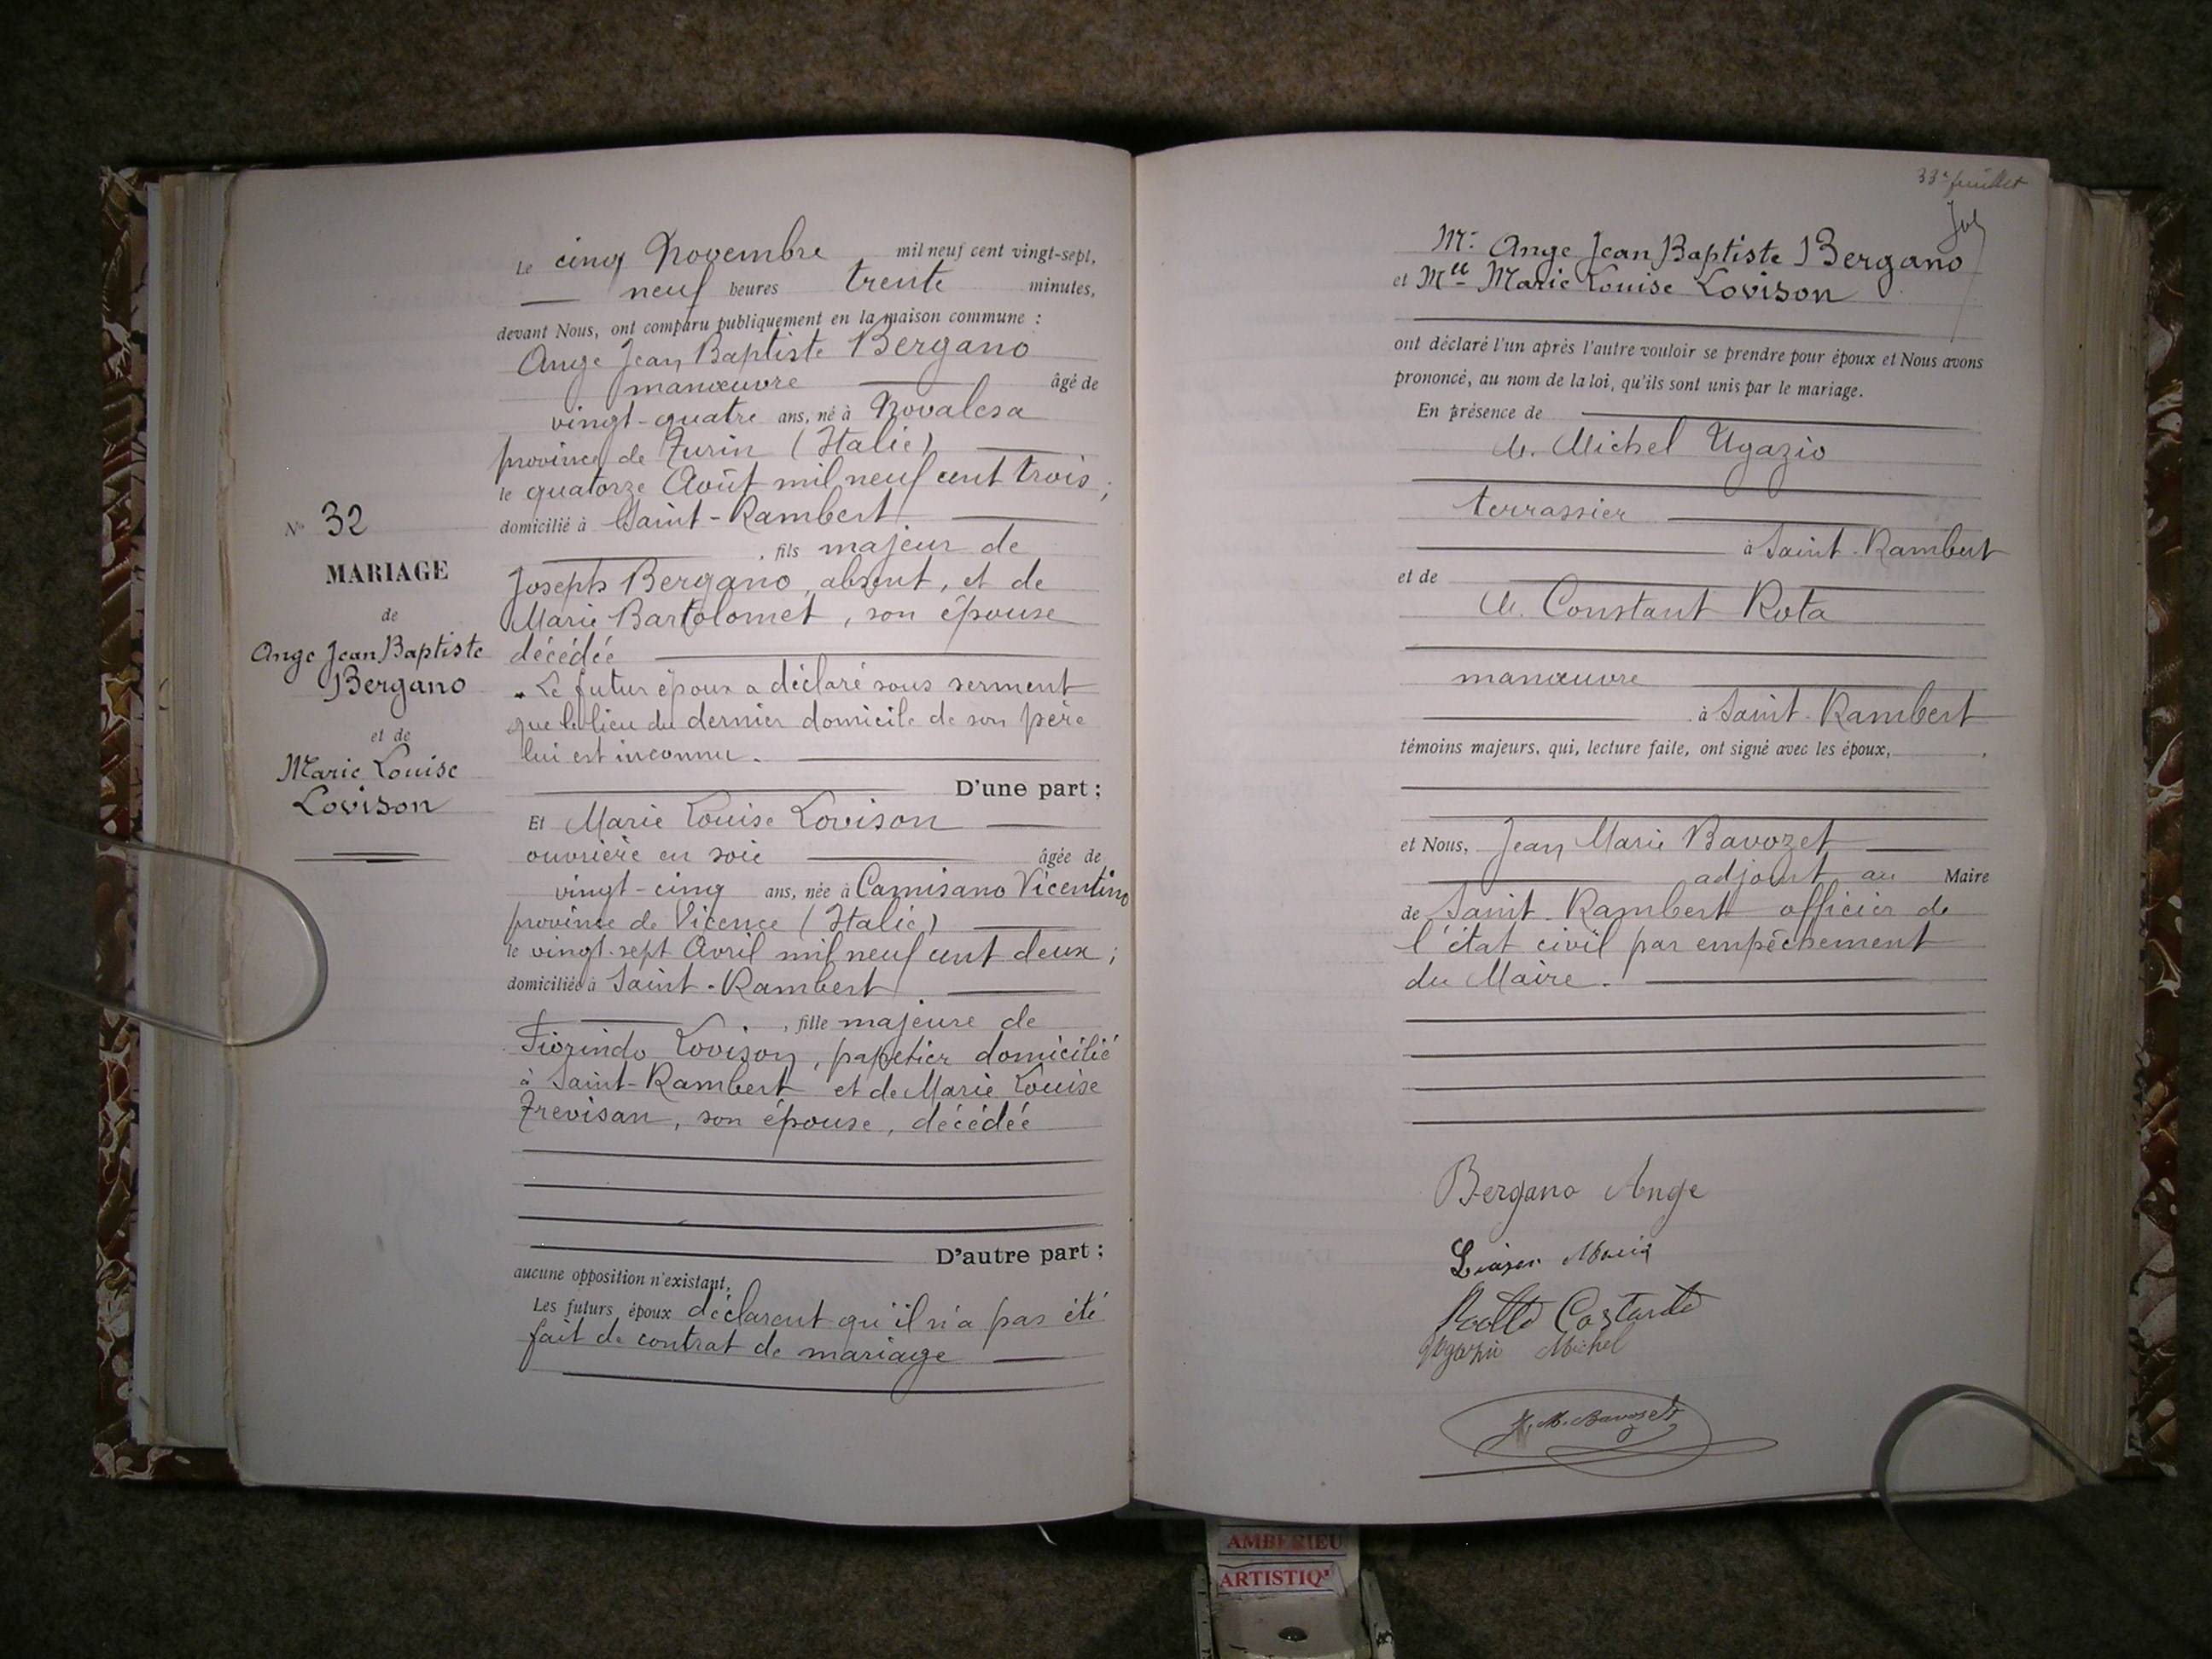 N° 32
MARIAGE
de
Ange Jean Baptiste
Bergano
et de
Marie Louise
Lovison
Le cinq Novembre mil neuf cent vingt-sept,
neuf heures trente minutes,
devant Nous, ont comparu publiquement en la maison commune :
Ange Jean Baptiste Bergano
manœuvre âgé de
vingt-quatre ans, né à Novalesa
province de Turin (Italie)
le quatorze Août mil neuf cent trois ;
domicilié à Saint-Rambert
, fils majeur de
Joseph Bergano, absent, et de
Marie Bartolomet, son épouse
décédée
Le futur époux a déclaré sous serment
que le lieu du dernier domicile de son père
lui est inconnu.
D'une part ;
Et Marie Louise Lovison
ouvrière en soie âgée de
vingt-cinq ans, née à Camisano Vicentino
province de Vicence (Italie)
le vingt-sept Avril mil neuf cent deux ;
domiciliée à Saint-Rambert
, fille majeure de
Fiorindo Lovison, papetier domicilié
à Saint-Rambert et de Marie Louise
Trevisan, son épouse, décédée
D'autre part ;
aucune opposition n'existant.
Les futurs époux déclarent qu'il n'a pas été
fait de contrat de mariage
33e feuillet
Mr Ange Jean Baptiste Bergano
et Melle Marie Louise Lovison
ont déclaré l'un après l'autre vouloir se prendre pour époux et Nous avons
prononcé, au nom de la loi, qu'ils sont unis par le mariage.
En présence de
M. Michel Ugazio
terrassier
à Saint-Rambert
et de
M. Constant Rota
manœuvre
à Saint-Rambert
témoins majeurs, qui, lecture faite, ont signé avec les époux,
et Nous, Jean Marie Bavozet
adjoint au Maire
de Saint-Rambert officier de
l'état civil par empêchement
du Maire.
Bergano Ange
Michel
J. M. Bavozet
AMBERIEU
ARTISTIQ